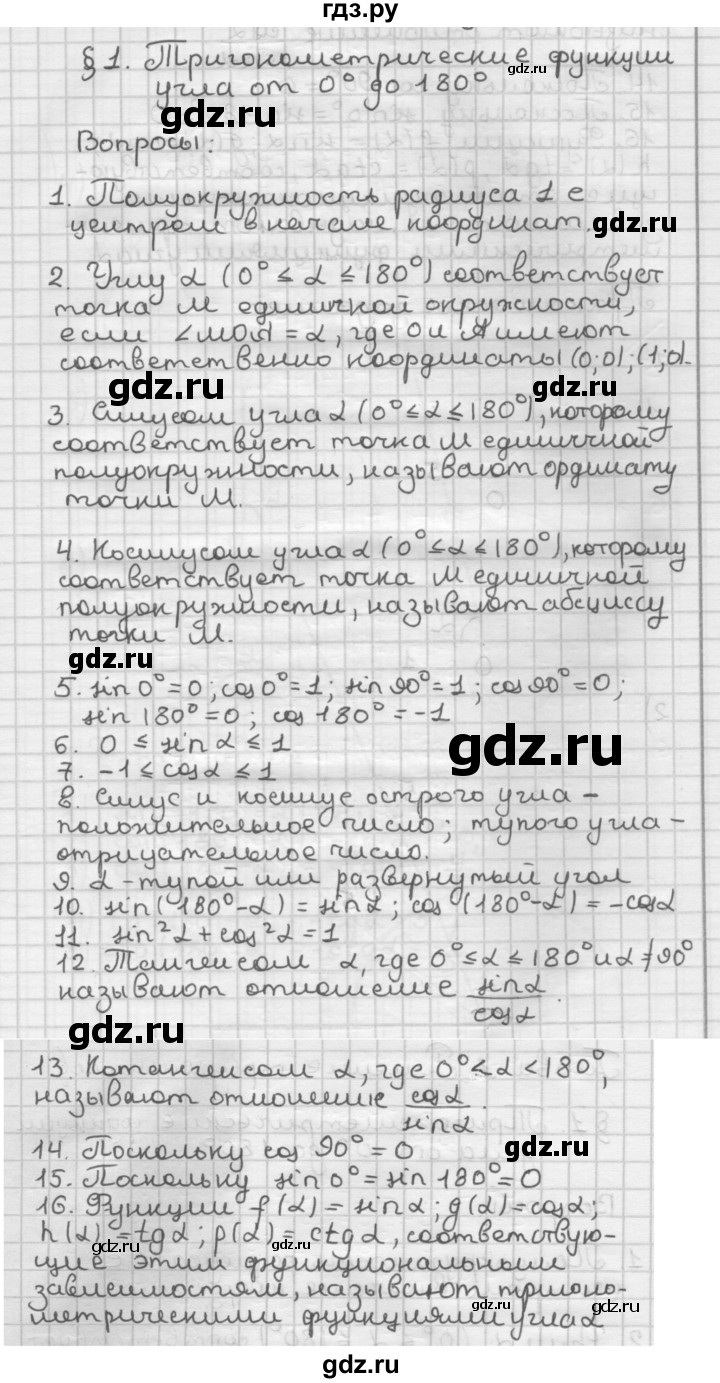 гдз.ру
§ 1. Тригонометрические функции
угла от 0° до 180°
gdz.ru
gdz.ru
Вопросы:
1. Полуокружность радиуса 1 с
центром в начале координат.
gdz.ru
2. Углу α (0° ≤ α ≤ 180°) соответствует
точка М единичной окружности,
если ∠MOA = α, где О и А имеют
соответственно координаты (0;0); (1;0).
gdz.ru
gdz.ru
3. Синусом угла α (0° ≤ α ≤ 180°), которому
соответствует точка М единичной
полуокружности, называют ординату
точки М.
4. Косинусом угла α (0° ≤ α ≤ 180°), которому
соответствует точка М единичной
полуокружности, называют абсциссу
точки М.
gdz.ru
5. sin 0° = 0; cos 0° = 1; sin 90° = 1; cos 90° = 0;
sin 180° = 0; cos 180° = -1
6. 0 ≤ sin α ≤ 1
gdz.ru
7. -1 ≤ cos α ≤ 1
8. Синус и косинус острого угла -
положительное число; тупого угла -
отрицательное число.
9. α - тупой или развернутый угол
10. sin(180° - α) = sin α; cos (180° - α) = -cos α
11. sin²α + cos²α = 1
12. Тангенсом α, где 0° ≤ α ≤ 180° и α ≠ 90°
называют отношение sin α / cos α.
gdz.ru
13. Котангенсом α, где 0° < α < 180°,
называют отношение cos α / sin α.
14. Поскольку cos 90° = 0
gdz.ru
15. Поскольку sin 0° = sin 180° = 0
16. Функции f(α) = sin α; g(α) = cos α;
h(α) = tg α; p(α) = ctg α, соответствую-
gdz.ru
gdz.ru
щие этим функциональным
зависимостям, называют тригоно-
метрическими функциями угла α
gdz.ru
gdz.ru
gdz.ru